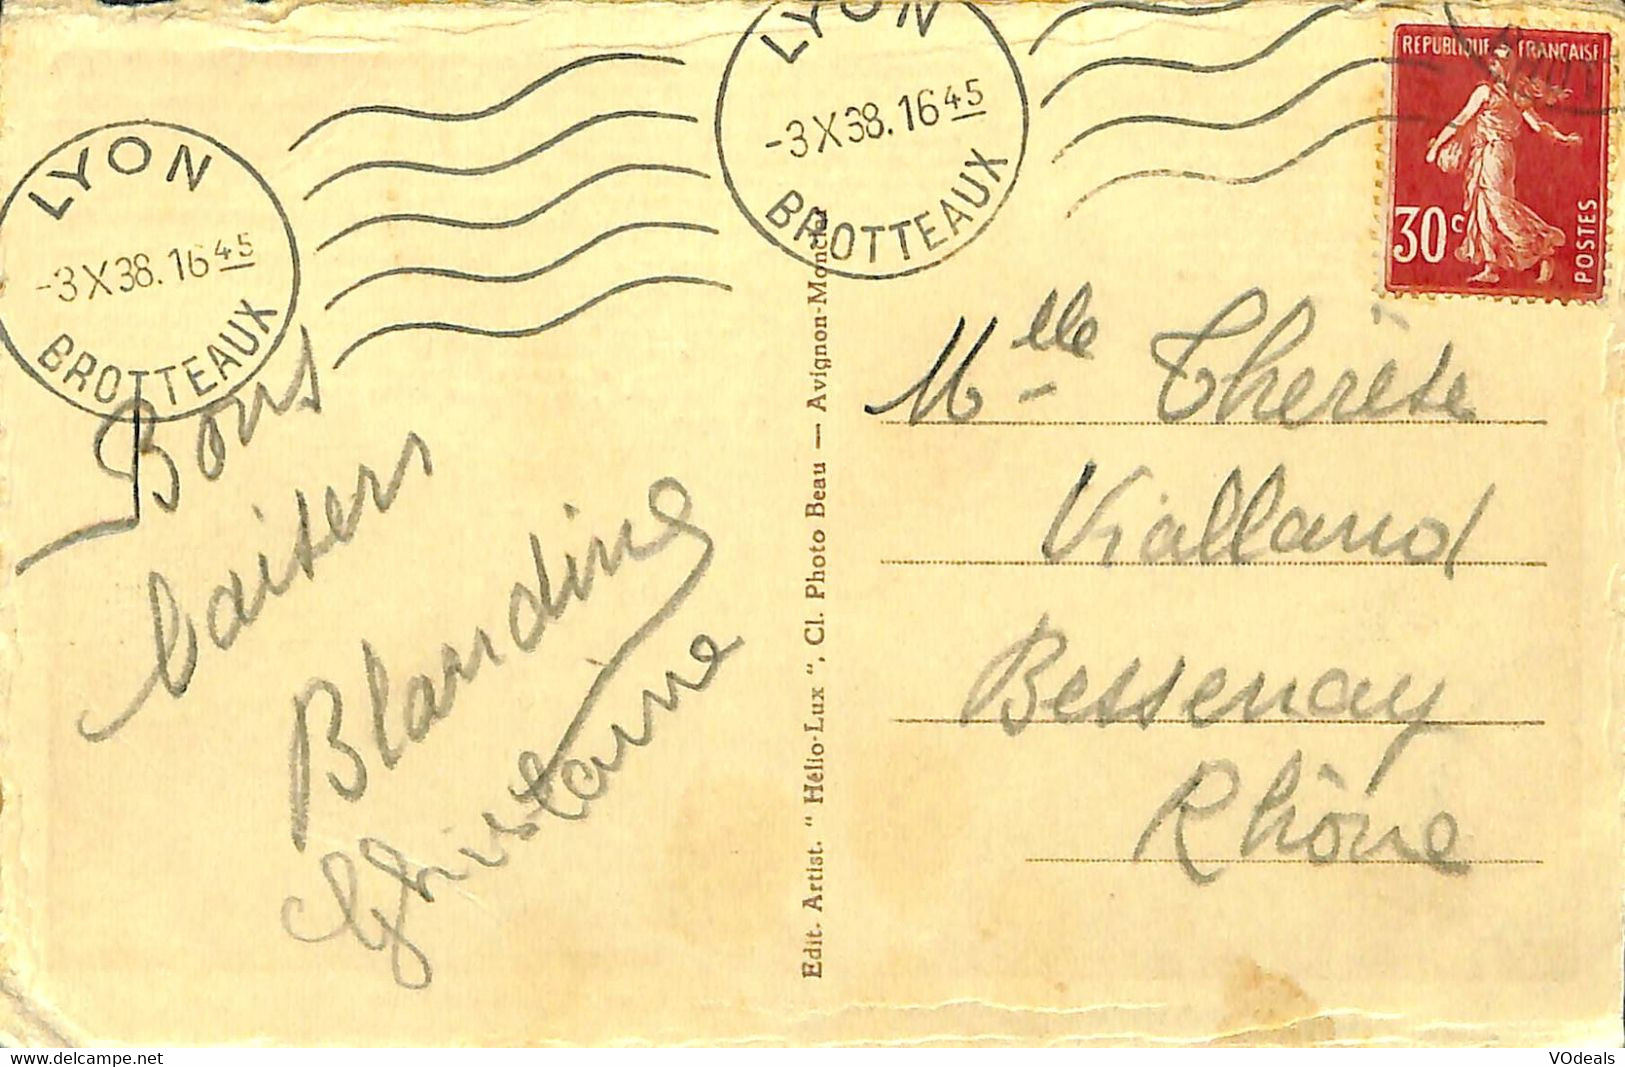 LYON
-3 X 38. 16 45
BROTTEAUX
LYON
-3 X 38. 16 45
BROTTEAUX
REPUBLIQUE FRANÇAISE
30 c
POSTES
Bons
baisers
Blandine
Ghislaine
Edit. Artist. " Hélio-Lux ", Cl. Photo Beau — Avignon-Monclar
Mlle Thérèse
Vialland
Bessenay
Rhône
VOdeals